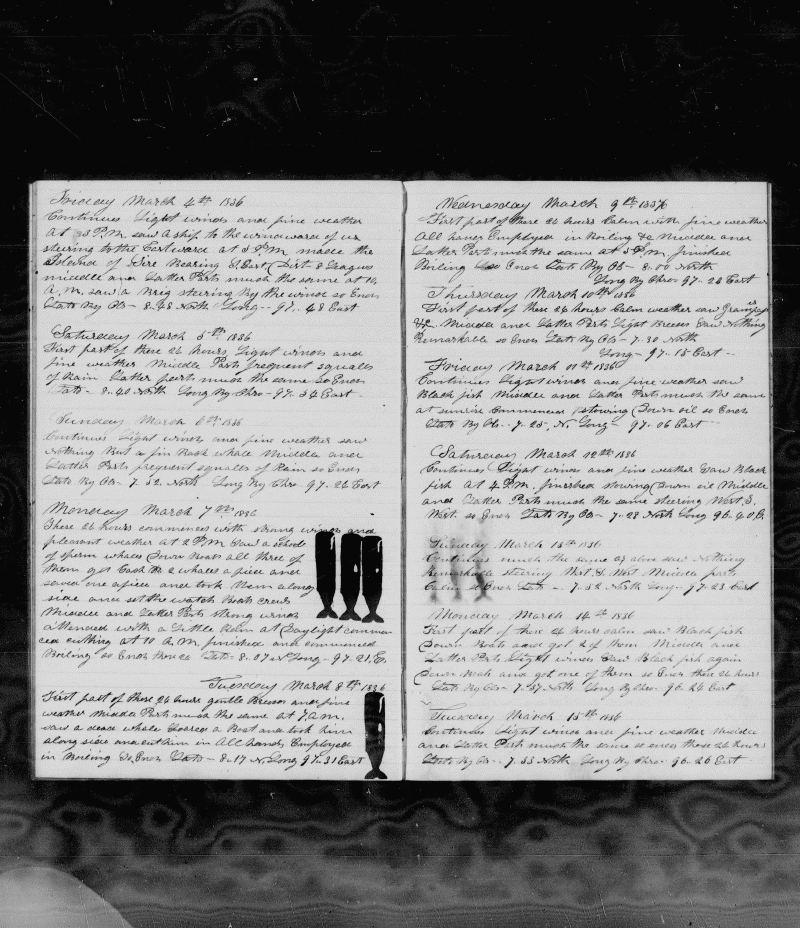 Friday March 4th 1836
Continues Light winds and fine weather
at 3 P.M. saw a ship to the windward of us
steering to the Eastward at 5 P.M. made the
Island of Bearing S. East Dist 8 Leagues
middle and Latter Parts much the same at 10
A.M. saw a Brig steering By the wind so Ends
Lats By Ob - 8-48 North Long - 97-48 East
Saturday March 5th 1836
First part of these 24 hours Light winds and
fine weather Middle Parts frequent squalls
of Rain Latter parts much the same so Ends
Lats - 8-40 North Long By Chro - 97-34 East
Sunday March 6th 1836
Continues Light winds and fine weather saw
Nothing But a fin Back whale Middle and
Latter Parts frequent squalls of Rain so Ends
Lats By Ob - 7-52 North Long By Chro 97-26 East
Monday March 7th 1836
These 24 hours commences with strong winds and
pleasant weather at 2 P.M. saw a school
of sperm whales Down Boats all three of
them got 2 whales a piece and
saved one apiece and took them along
side and set the watch Boats crews
Middle and Latter Parts strong winds
attended with a Little Rain at Daylight commen
ced cutting at 10 A.M. finished and commenced
Boiling so Ends those 24 Lats - 8-07 N Long - 97-21 E.
Tuesday March 8th 1836
First part of these 24 hours gentle Breeses and fine
weather Middle Parts much the same at 7 A.M.
saw a dead whale Lowered a Boat and took him
along side and cut him in All hands Employed
in Boiling So Ends Lats - 8-17 N. Long 97-31 East
Wednesday March 9th 1836
First part of these 24 hours Calm with fine weather
All hands Employed in Boiling &c Middle and
Latter Parts much the same at 5 P.M. finished
Boiling so Ends Lats By Ob - 8-00 North
Long By Chro - 97-23 East
Thursday March 10th 1836
First part of these 24 hours Calm weather saw
&c Middle and Latter Parts Light Breeses Saw Nothing
Remarkable so Ends Lats By Ob - 7-30 North
Long - 97-15 East
Friday March 11th 1836
Continues Light winds and fine weather saw
Black fish Middle and Latter Parts much the same
at sunrise commenced stowing Down oil so Ends
Lats By Ob - 7-25 - N. Long - 97-06 East
Saturday March 12th 1836
Continues Light winds and fine weather Saw Black
fish at 4 P.M. finished stowing Down oil Middle
and Latter Parts much the same steering West S.
West. so Ends Lats By Ob - 7-28 North Long 96-40 E.
Sunday March 13th 1836
Continues much the same as above saw Nothing
Remarkable steering West S. West Middle parts
Calm so Ends Lats - 7-32 North Long - 97-23 East
Monday March 14th 1836
First part of these 24 hours calm saw Black fish
Down Boats and got 2 of them Middle and
Latter Parts Light winds Saw Black fish again
Down Boats and got one of them so Ends these 24 hours
Lats By Ob - 7-37 North Long By Chro - 96-26 East
Tuesday March 15th 1836
Continues Light winds and fine weather Middle
and Latter Parts much the same so ends those 24 hours
Lats By Ob - 7-33 North Long By Chro - 96-26 East